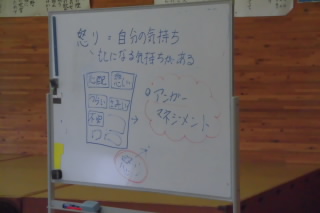 怒り = 自分の気持ち
もとになる気持ちがある
心配
悲しい
つらい
さみしい
不安
アンガー
マネジメント